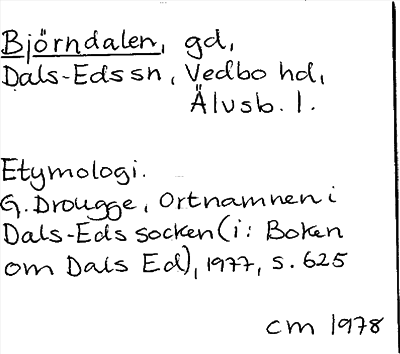 Björndalen, gd,
Dals-Eds sn, Vedbo hd,
Älvsb. l.
Etymologi.
G. Drougge, Ortnamnen i
Dals-Eds socken (i: Boken
om Dals Ed), 1977, s. 625
cm 1978